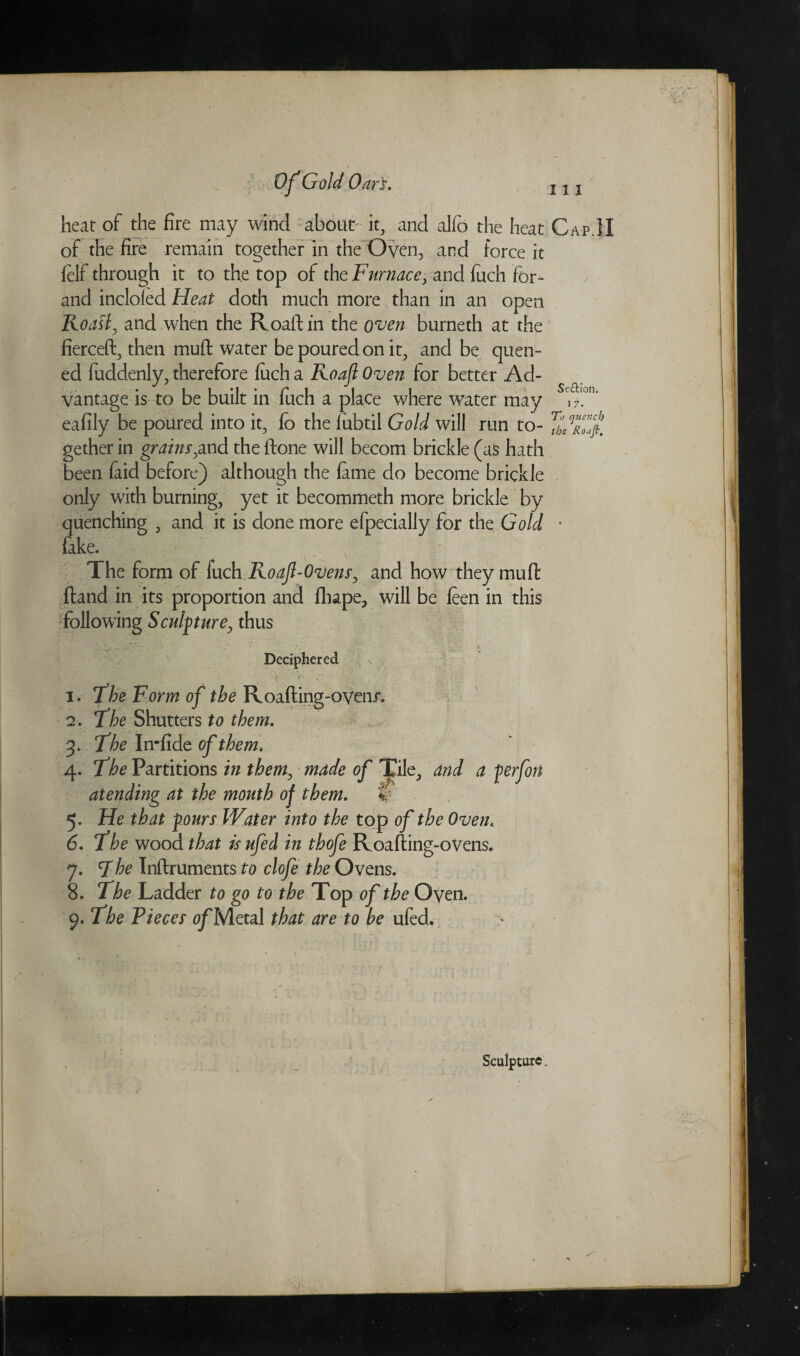 Of Gold Oars.
111
heat of the fire may wind about it, and alſo the heat
Cap.II
of the fire remain together in the Oven, and force it
ſelf through it to the top of the Furnace, and ſuch for-
and incloſed Heat doth much more than in an open
Roaſt, and when the Roaſt in the oven burneth at the
fierceſt, then muſt water be poured on it, and be quen-
ed ſuddenly, therefore ſuch a Roaſt Oven for better Ad-
vantage is to be built in ſuch a place where water may
Section.
17.
eaſily be poured into it, ſo the ſubtil Gold will run to-
To quench
the Roaſt.
gether in grains,and the ſtone will becom brickle (as hath
been ſaid before) although the ſame do become brickle
only with burning, yet it becommeth more brickle by
quenching , and it is done more eſpecially for the Gold
ſake.
The form of ſuch Roaſt-Ovens, and how they muſt
ſtand in its proportion and ſhape, will be ſeen in this
following Sculpture, thus
Deciphered
1. The Form of the Roaſting-ovens.
2. The Shutters to them.
3. The In-ſide of them.
4. The Partitions in them, made of Tile, and a perſon
atending at the mouth of them.
5. He that pours Water into the top of the Oven.
6. The wood that is uſed in thoſe Roaſting-ovens.
7. The Inſtruments to cloſe the Ovens.
8. The Ladder to go to the Top of the Oven.
9. The Pieces of Metal that are to be uſed.
Sculpture.